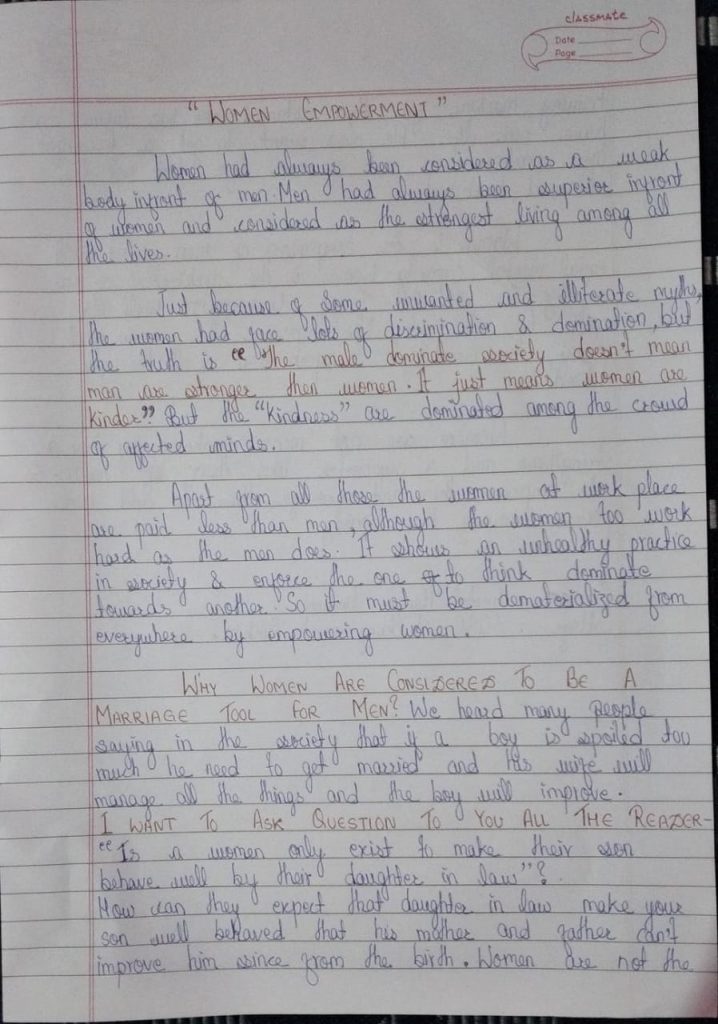 classmate
Date
Page
" WOMEN EMPOWERMENT "
Women had always been considered as a weak
body infront of men. Men had always been superior infront
of women and considered as the strongest living among all
the lives.
Just because of Some unwanted and illiterate myths,
the women had face lots of discrimination & domination, but
the truth is “ "The male dominate society doesn't mean
man are stronger then women. It just means women are
kinder". But the "kindness" are dominated among the crowd
of affected minds.
Apart from all those the women at work place
are paid less than men, although the women too work
hard as the men does. It shows an unhealthy practice
in society & enforce the one to think dominate
towards another. So it must be dematerialized from
everywhere by empowering women.
WHY WOMEN ARE CONSIDERED TO BE A
MARRIAGE TOOL FOR MEN? We heard many people
saying in the society that if a boy is spoiled too
much he need to get married and his wife will
manage all the things and the boy will improve.
I WANT TO ASK QUESTION TO YOU ALL THE READER-
"Is a women only exist to make their son
behave well by their daughter in law"?
How can they expect that daughter in law make your
son well behaved that his mother and father can't
improve him since from the birth. Women are not the